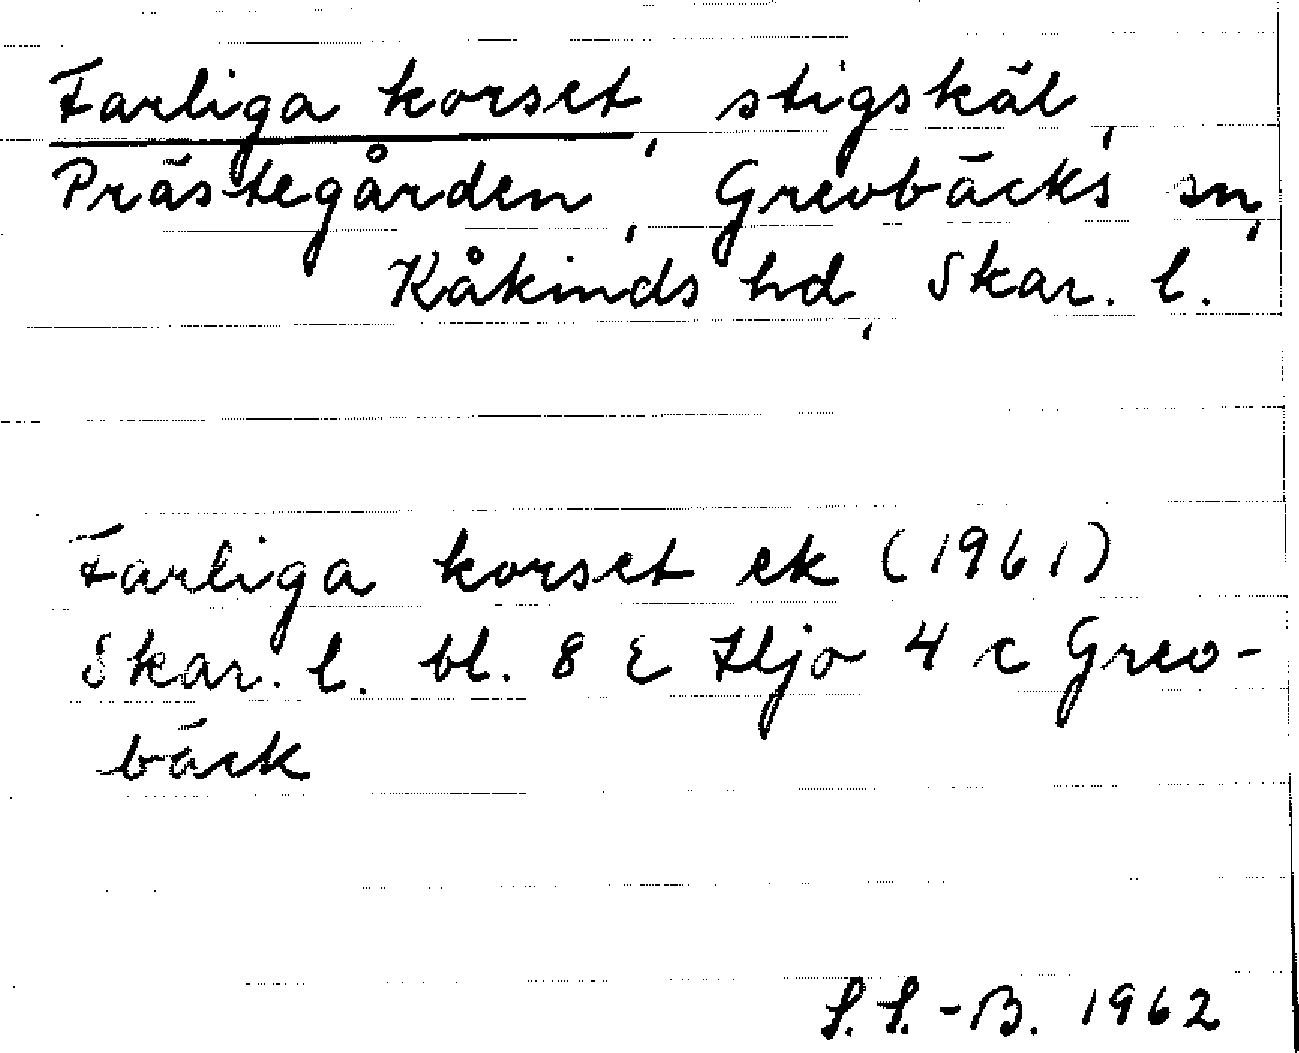 Farliga korset, stigskäl,
Prästegården, Grevbäcks sn,
Kåkinds hd, Skar. l.
Farliga korset ek (1961)
Skar. l. bl. 8 E Hjo 4 c Grev-
bäck
S.S.-B. 1962